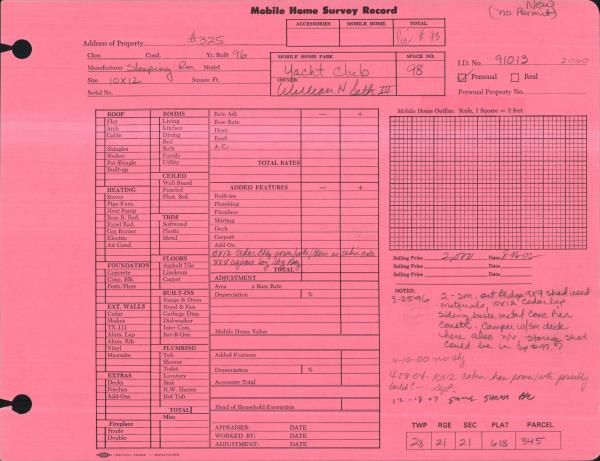 New
(no Permit)
Mobile Home Survey Record
ACCESSORIES MOBILE HOME TOTAL
$93
Address of Property #325
Class Cond. Yr. Built 96
Manufacturer Sleeping Rm Model
Size 10x12 Square Ft.
Serial No.
MOBILE HOME PARK SPACE NO.
Yacht Club 98
OWNER:
William N III
I.D. No. 91013 2000
Personal Real
Personal Property No.
ROOF
Flat
Arch
Gable
Shingles
Shakes
Pat Shingle
Built-up
HEATING
Stoves
Pipe Furn.
Heat Pump
Base B. Rad.
Panel Rad.
Gas Burner
Electric
Air Cond.
FOUNDATION
Concrete
Conc. Blk.
Posts/Piers
EXT. WALLS
Cedar
Shakes
TX-111
Alum. Lap
Alum. Rib
Vinyl
Masonite
EXTRAS
Decks
Porches
Add-Out
Fireplace
Single
Double
ROOMS
Living
Kitchen
Dining
Bed
Bath
Family
Utility
CEILED
Wall Board
Paneled
Plast. Brd.
TRIM
Softwood
Metal
FLOORS
Asphalt Tile
Linoleum
Carpet
BUILT-INS
Range & Oven
Hood & Fan
Garbage Disp.
Dishwasher
Inter Com.
Bar-B-Que
PLUMBING
Tub
Shower
Toilet
Lavatory
Sink
H.W. Heater
Hot Tub
TOTAL
Misc.
Rate Adj. — +
Base Rate
Heat:
Roof:
A. C.:
TOTAL RATES
ADDED FEATURES — +
Built-ins
Plumbing
Fireplace
Skirting
Deck
Carport
Add On
10x12 Cedar Bldg
TOTAL
ADJUSTMENT
Area x Base Rate
Depreciation %
Mobile Home Value
Added Features
Depreciation %
Accessory Total
Head of Household Exemption
APPRAISER: DATE
WORKED BY: DATE
ADJUSTMENT: DATE
Mobile Home Outline: Scale, 1 Square = 2 feet
Selling Price Date 8-16-02
Selling Price Date
Selling Price Date
NOTES:
3-25-96 2-Sm. out Bldgs 9x9 Shed used
materials, 10x12 Cedar lap
siding, metal Conc Pier
Constr. Camper w/sm deck
here also n/v Storage shed
could be in Sp #99?
4-10-00 no chg
4-28-04 10x12 cabin has power/ possibly
12-18-07
TWP RGE SEC PLAT PARCEL
28 21 21 618 345